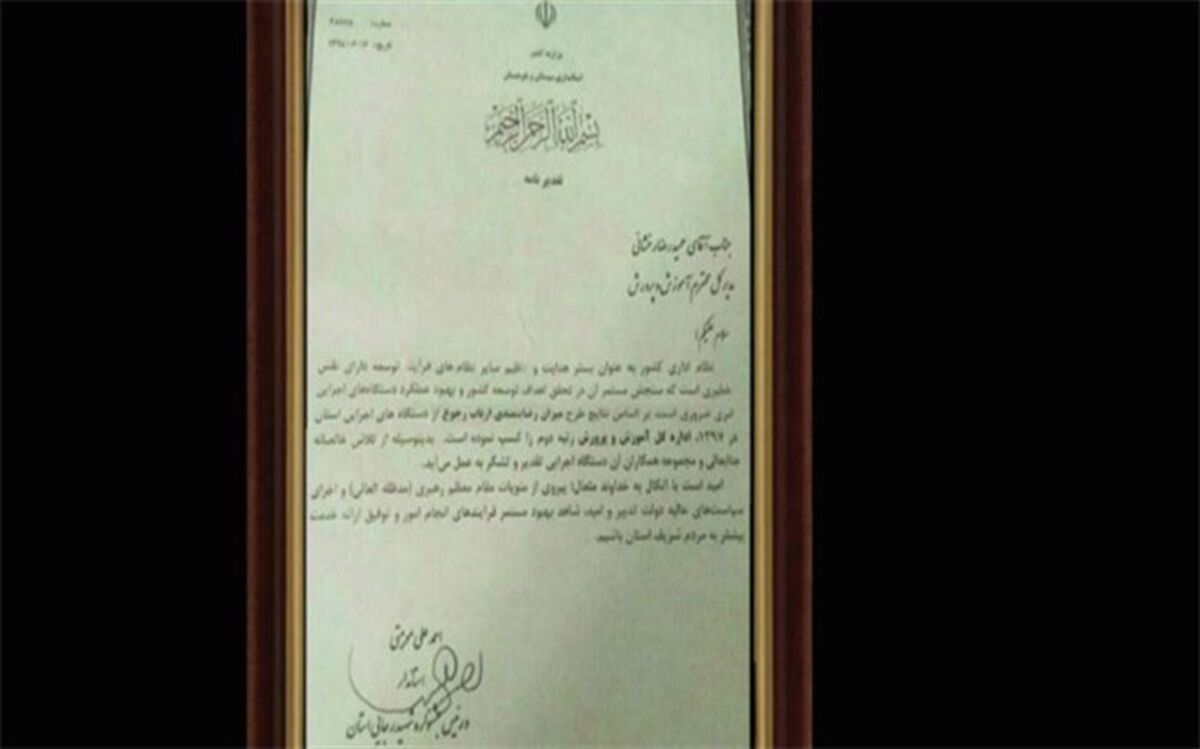 وزارت کشور
استانداری سیستان و بلوچستان
بسم الله الرحمن الرحیم
تقدیر نامه
جناب آقای حمیدرضا رخشانی
مدیرکل محترم آموزش و پرورش
سلام علیکم؛
نظام اداری کشور به عنوان بستر هدایت و تنظیم سایر نظام های فرآیند توسعه دارای نقش
خطیری است که سنجش مستمر آن در تحقق اهداف توسعه کشور و بهبود عملکرد دستگاه‌های اجرایی
امری ضروری است بر اساس نتایج طرح میزان رضایتمندی ارباب رجوع از دستگاه های اجرایی استان
در ۱۳۹۷، اداره کل آموزش و پرورش رتبه دوم را کسب نموده است. بدینوسیله از تلاش خالصانه
جنابعالی و مجموعه همکاران آن دستگاه اجرایی تقدیر و تشکر به عمل می‌آید.
امید است با اتکال به خداوند متعال، پیروی از منویات مقام معظم رهبری (مدظله العالی) و اجرای
سیاست‌های عالیه دولت تدبیر و امید، شاهد بهبود مستمر فرآیندهای انجام امور و توفیق ارائه خدمت
بیشتر به مردم شریف استان باشیم.
احمد علی موهبتی
استاندار
و رئیس جشنواره شهید رجایی استان